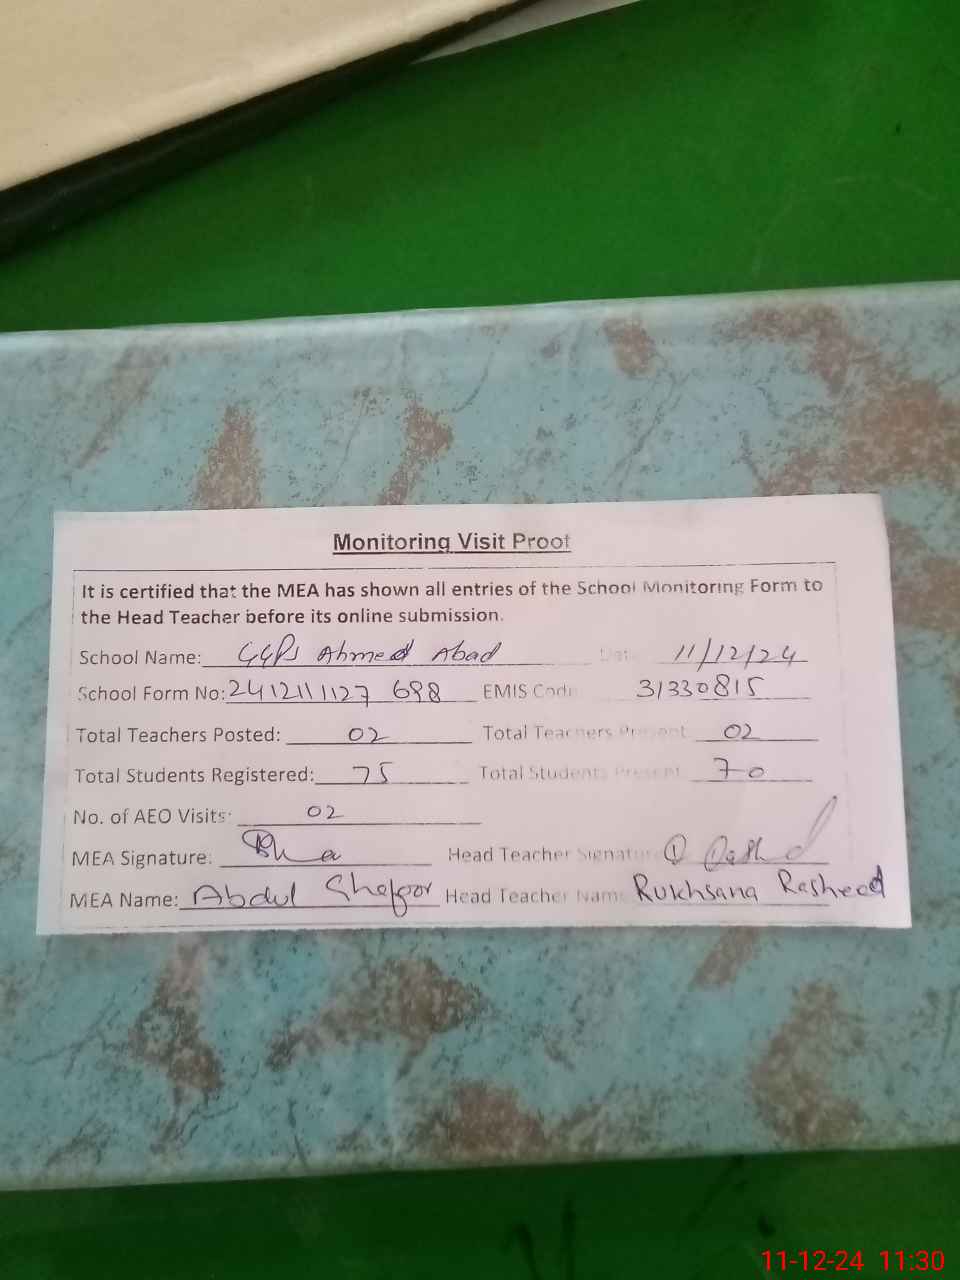 Monitoring Visit Proof
It is certified that the MEA has shown all entries of the School Monitoring Form to
the Head Teacher before its online submission.
School Name: GGPS Ahmed Abad Date 11/12/24
School Form No: 2412111127 698 EMIS Code 31330815
Total Teachers Posted: 02 Total Teachers Present 02
Total Students Registered: 75 Total Students Present 70
No. of AEO Visits: 02
MEA Signature: Head Teacher Signature
MEA Name: Abdul Ghafoor Head Teacher Name Rukhsana Rasheed
11-12-24 11:30